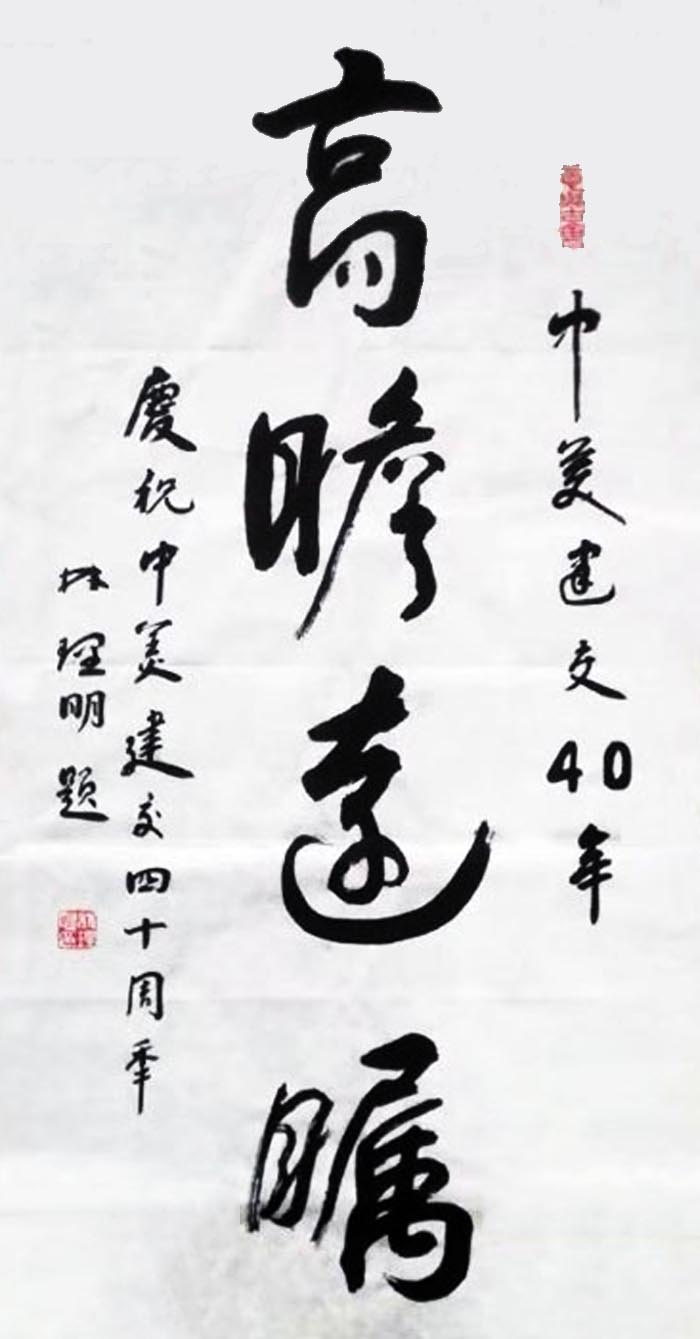 中美建交40年
高瞻遠瞩
慶祝中美建交四十周年
林理明题